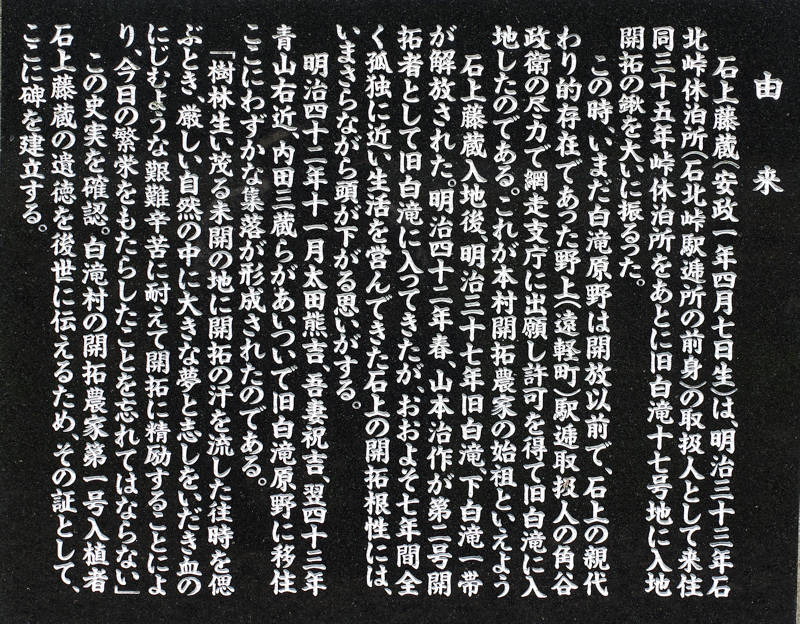 由来
石上藤蔵(安政一年四月七日生)は、明治三十三年石
北峠休泊所(石北峠駅逓所の前身)の取扱人として来住
同三十五年峠休泊所をあとに旧白滝十七号地に入地
開拓の鍬を大いに振るった。
この時、いまだ白滝原野は開放以前で、石上の親代
わり的存在であった野上(遠軽町)駅逓取扱人の角谷
政衛の尽力で網走支庁に出願し許可を得て旧白滝に入
地したのである。これが本村開拓農家の始祖といえよう
石上藤蔵入地後、明治三十七年旧白滝、下白滝一帯
が解放された。明治四十二年春、山本治作が第二号開
拓者として旧白滝に入ってきたが、おおよそ七年間全
く孤独に近い生活を営んできた石上の開拓根性には、
いまさらながら頭が下がる思いがする。
明治四十二年十一月太田熊吉、吾妻祝吉、翌四十三年
青山右近、内田三蔵らがあいついで旧白滝原野に移住
ここにわずかな集落が形成されたのである。
「樹林生い茂る未開の地に開拓の汗を流した往時を偲
ぶとき、厳しい自然の中に大きな夢と志しをいだき血の
にじむような艱難辛苦に耐えて開拓に精励することによ
り、今日の繁栄をもたらしたことを忘れてはならない」
この史実を確認。白滝村の開拓農家第一号入植者
石上藤蔵の遺徳を後世に伝えるため、その証として、
ここに碑を建立する。